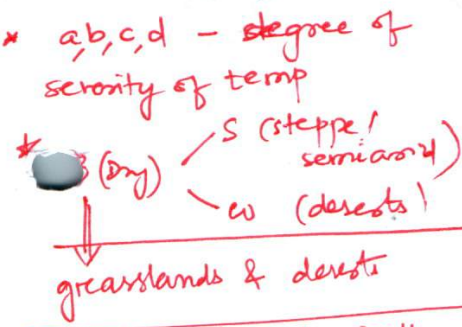 * a,b,c,d - degree of
severity of temp
* B (Dry)
S (steppe/
semiarid)
w (deserts)
greasslands & deserts